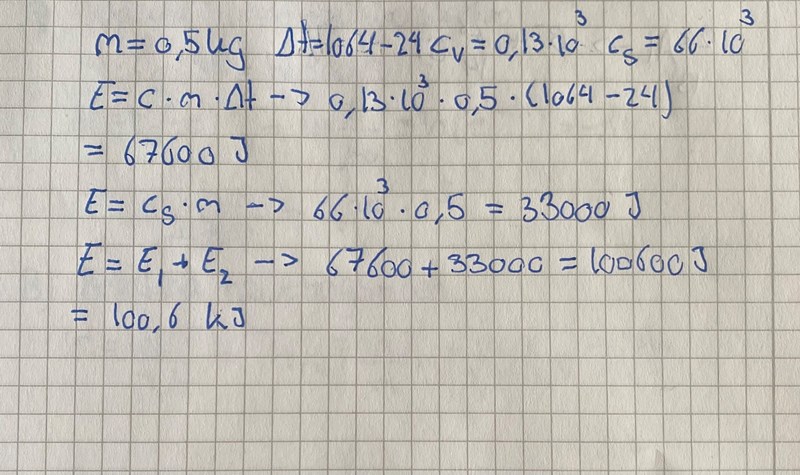 m = 0,5 kg Δt = 1064 - 24 c_v = 0,13 · 10³ c_s = 66 · 10³
E = c · m · Δt -> 0,13 · 10³ · 0,5 · (1064 - 24)
= 67600 J
E = c_s · m -> 66 · 10³ · 0,5 = 33000 J
E = E₁ + E₂ -> 67600 + 33000 = 100600 J
= 100,6 kJ